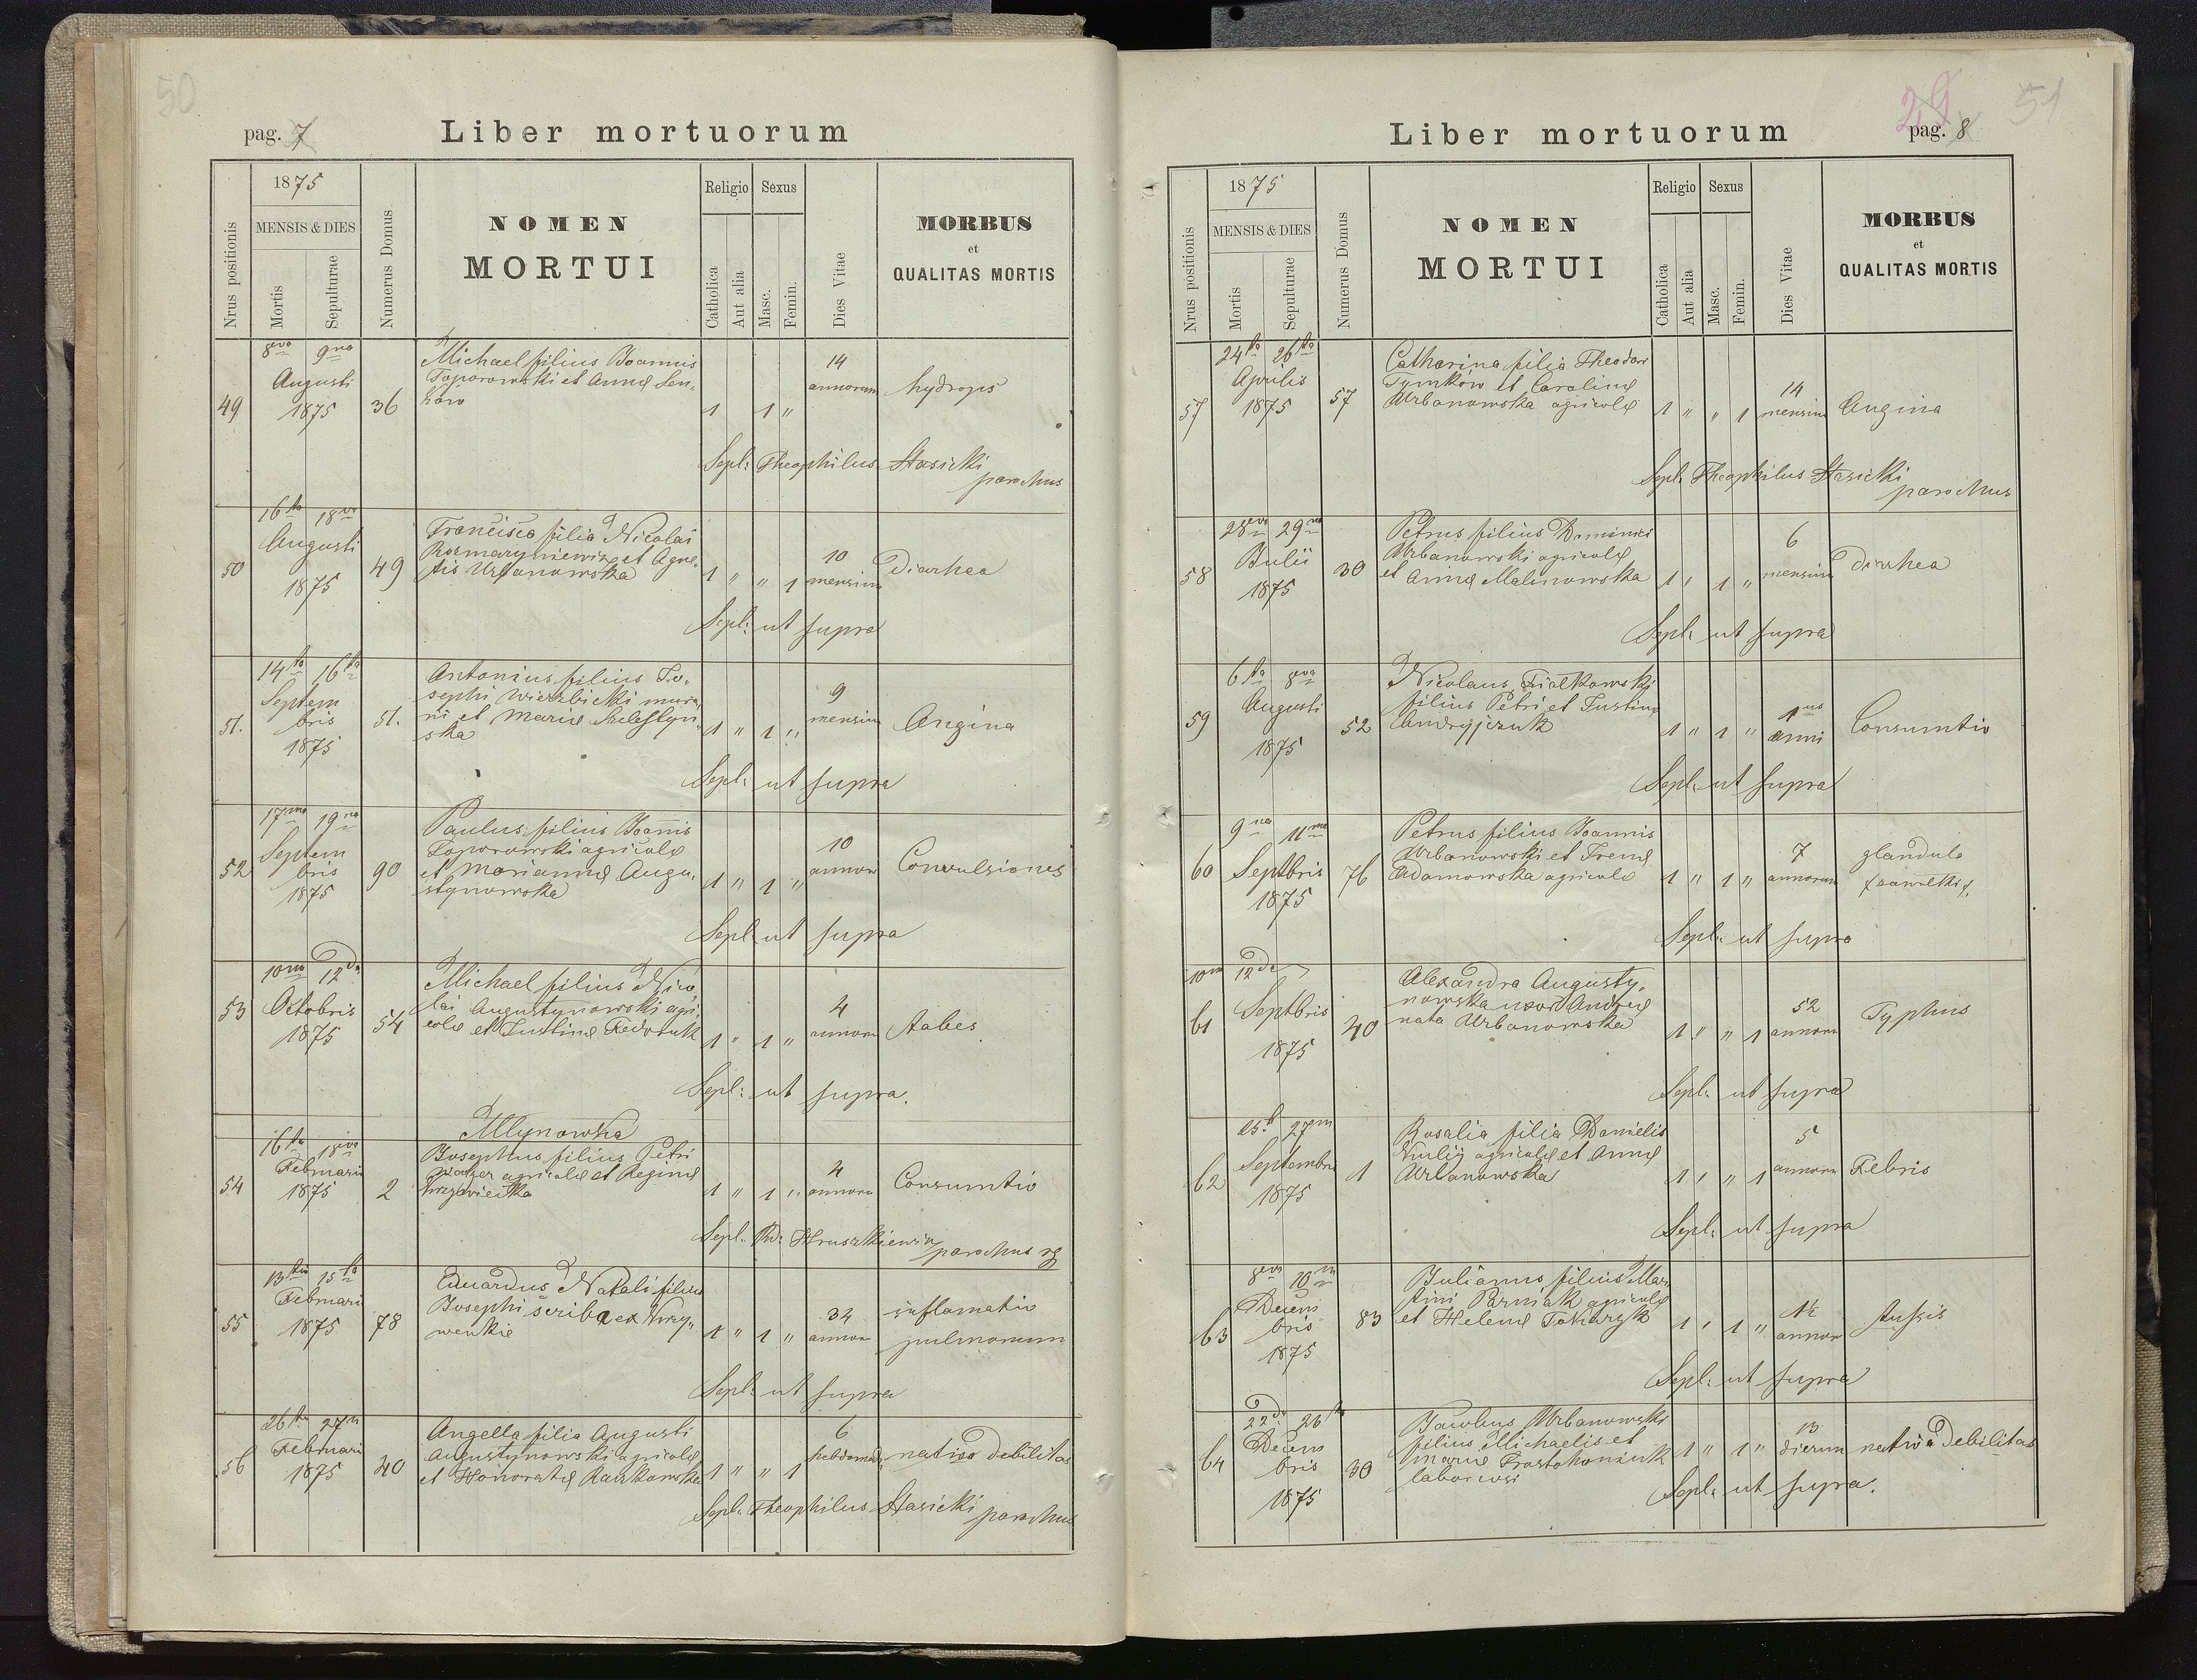 50
pag. 7
Liber mortuorum
1875
Religio
Sexus
Nrus positionis
MENSIS & DIES
Mortis
Sepulturae
Numerus Domus
NOMEN
MORTUI
Catholica
Aut alia
Masc.
Femin.
Dies Vitae
MORBUS
et
QUALITAS MORTIS
49
8va 9na
Augusti
1875
36
Michael filius Joannis
Toporowski et Annæ Sen„
ków
1 1 „
14
annorum
hydrops
Sepl: Theophilus Stasicki
parochus
50
16ta 18va
Augusti
1875
49
Francisca filia Nicolai
Rozmaryniewicz et Agne„
tis Urbanowska
1 „ „ 1
10
mensium
Diarhea
Sepl: ut supra
51.
14ta 16ta
Septem
bris
1875
51.
Antonius filius Jo„
sephi Wierzbicki mura„
ni et Mariæ
ska
1 „ 1 „
9
mensium
Angina
Sepl: ut supra
52
17ma 19na
Septem
bris
1875
90
Paulus filius Joannis
Toporowski agricolæ
et Mariannæ Augu„
stynowska
1 „ 1 „
10
annorum
Convulsiones
Sepl: ut supra
53
10ma 12da
Octobris
1875
54
Michael filius Nico
lai Augustynowski agri„
colæ et Justinæ Fedoruk
1 „ 1 „
4
annorum
Tabes
Sepl: ut supra.
Młynowska
54
16ta 18va
Februarii
1875
2
Josephus filius Petri
agricolæ et Reginæ
Krzywiecka
1 „ 1 „
4
annorum
Consumtio
Sepl: Hruszkiewicz
parochus rg
55
13tia 15ta
Februarii
1875
78
Eduardus Natali filius
Josephi scriba ex Krzy„
wenkie
1 „ 1 „
34
annorum
inflamatio
pulmonum
Sepl: ut supra
56
26ta 27ma
Februarii
1875
40
Angella filia Augusti
Augustynowski agricolæ
et Honoratæ Rankowska
1 „ „ 1
6
hebdomad.
nativa debilitas
Sepl: Theophilus Stasicki parochus
29 51
Liber mortuorum
pag. 8
1875
Religio
Sexus
Nrus positionis
MENSIS & DIES
Mortis
Sepulturae
Numerus Domus
NOMEN
MORTUI
Catholica
Aut alia
Masc.
Femin.
Dies Vitae
MORBUS
et
QUALITAS MORTIS
57
24ta 26ta
Aprilis
1875
57
Catharina filia Theodori
Tymków et Carolinæ
Urbanowska agricolæ
1 „ „ 1
14
mensium
Angina
Sepl: Theophilus Stasicki
parochus
58
28va 29na
Julii
1875
30
Petrus filius Dominici
Urbanowski agricolæ
et Annæ Malinowska
1 „ 1 „
6
mensium
diarhea
Sepl: ut supra
59
6ta 8va
Augusti
1875
52
Nicolaus Fiałkowski
filius Petri et Justinæ
Andryjczuk
1 „ 1 „
1nus
anni
Consumtio
Sepl: ut supra
60
9na 11ma
Septbris
1875
76
Petrus filius Joannis
Urbanowski et Irenæ
Adamowska agricolæ
1 „ 1 „
7
annorum
glandulo
Sepl: ut supra
61
10ma 12da
Septbris
1875
40
Alexandra Augusty„
nowska uxor Andreæ
nata Urbanowska
1 „ „ 1
52
annorum
Typhus
Sepl: ut supra
62
25t 27ma
Septembris
1875
1
Rosalia filia Danielis
agricolæ et Annæ
Urbanowska
1 „ „ 1
5
annorum
Febris
Sepl: ut supra
63
8va 10ma
Decem
bris
1875
83
Julianus filius Mar
tini Parniak agricolæ
et Helenæ Tokarzyk
1 „ 1 „
1½
annorum
tussis
Sepl: ut supra
64
22da 26ta
Decem
bris
1875
30
Jacobus Urbanowski
filius Michaelis et
Mariæ Prostokoniuk
laboriosi
1 „ 1 „
13
dierum
nativa debilitas
Sepl: ut supra.